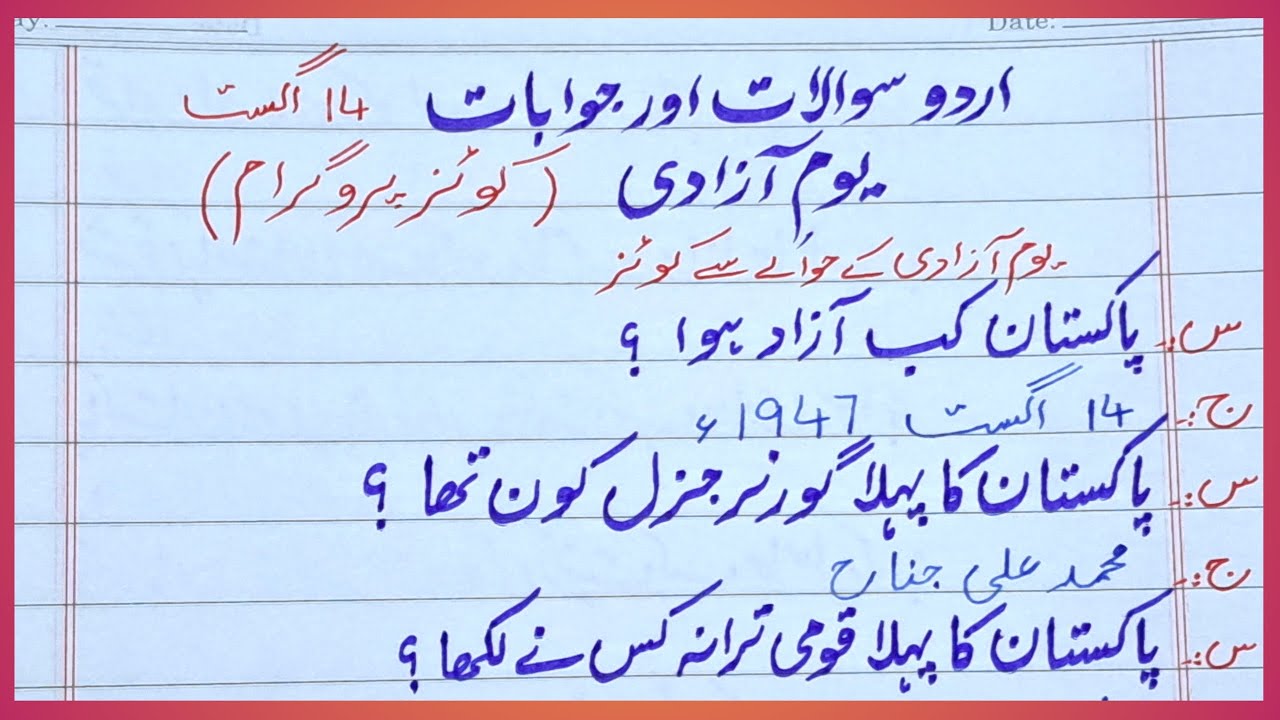 Date:
اردو سوالات اور جوابات 14 اگست
یوم آزادی (کوئز پروگرام)
یوم آزادی کے حوالے سے کوئز
س:۔ پاکستان کب آزاد ہوا ؟
ج:۔ 14 اگست 1947ء
س:۔ پاکستان کا پہلا گورنر جنرل کون تھا ؟
ج:۔ محمد علی جناح
س:۔ پاکستان کا پہلا قومی ترانہ کس نے لکھا ؟